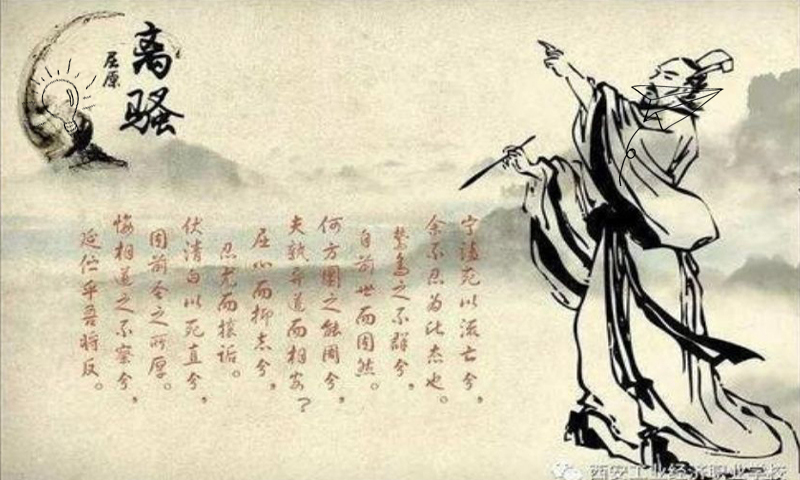 离骚
屈原
宁溘死以流亡兮，
余不忍为此态也。
鸷鸟之不群兮，
自前世而固然。
何方圜之能周兮，
夫孰异道而相安？
屈心而抑志兮，
忍尤而攘诟。
伏清白以死直兮，
固前圣之所厚。
悔相道之不察兮，
延伫乎吾将反。
西安工业经济职业学校